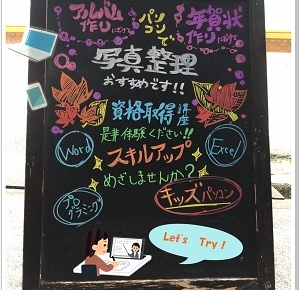 アルバム
作りにむけて
パソコンで
年賀状
作りにむけて
写真整理
おすすめです!!
資格取得講座
是非体験ください!!
Word
スキルアップ
Excel
めざしませんか?
プログラミング
キッズパソコン
Let's Try!